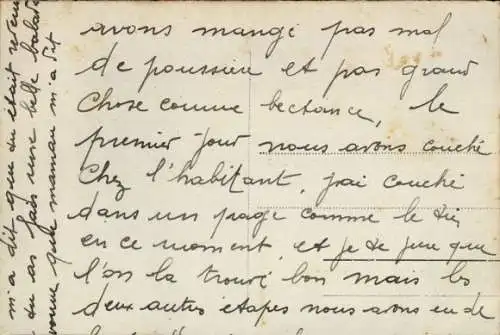 avons mangé pas mal
de poussière et pas grand
Chose comme bectance, le
premier jour nous avons couché
Chez l'habitant, j'ai couché
dans un page comme le tien
en ce moment, et je te jure que
l'on la trouvé bon mais les
deux autres étapes nous avons eu de
m'a dit que tu était venu
tu as fais une belle balade
comme que maman m'a dit